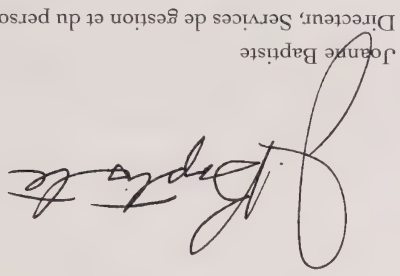 J. Baptiste
Joanne Baptiste
Directeur, Services de gestion et du perso